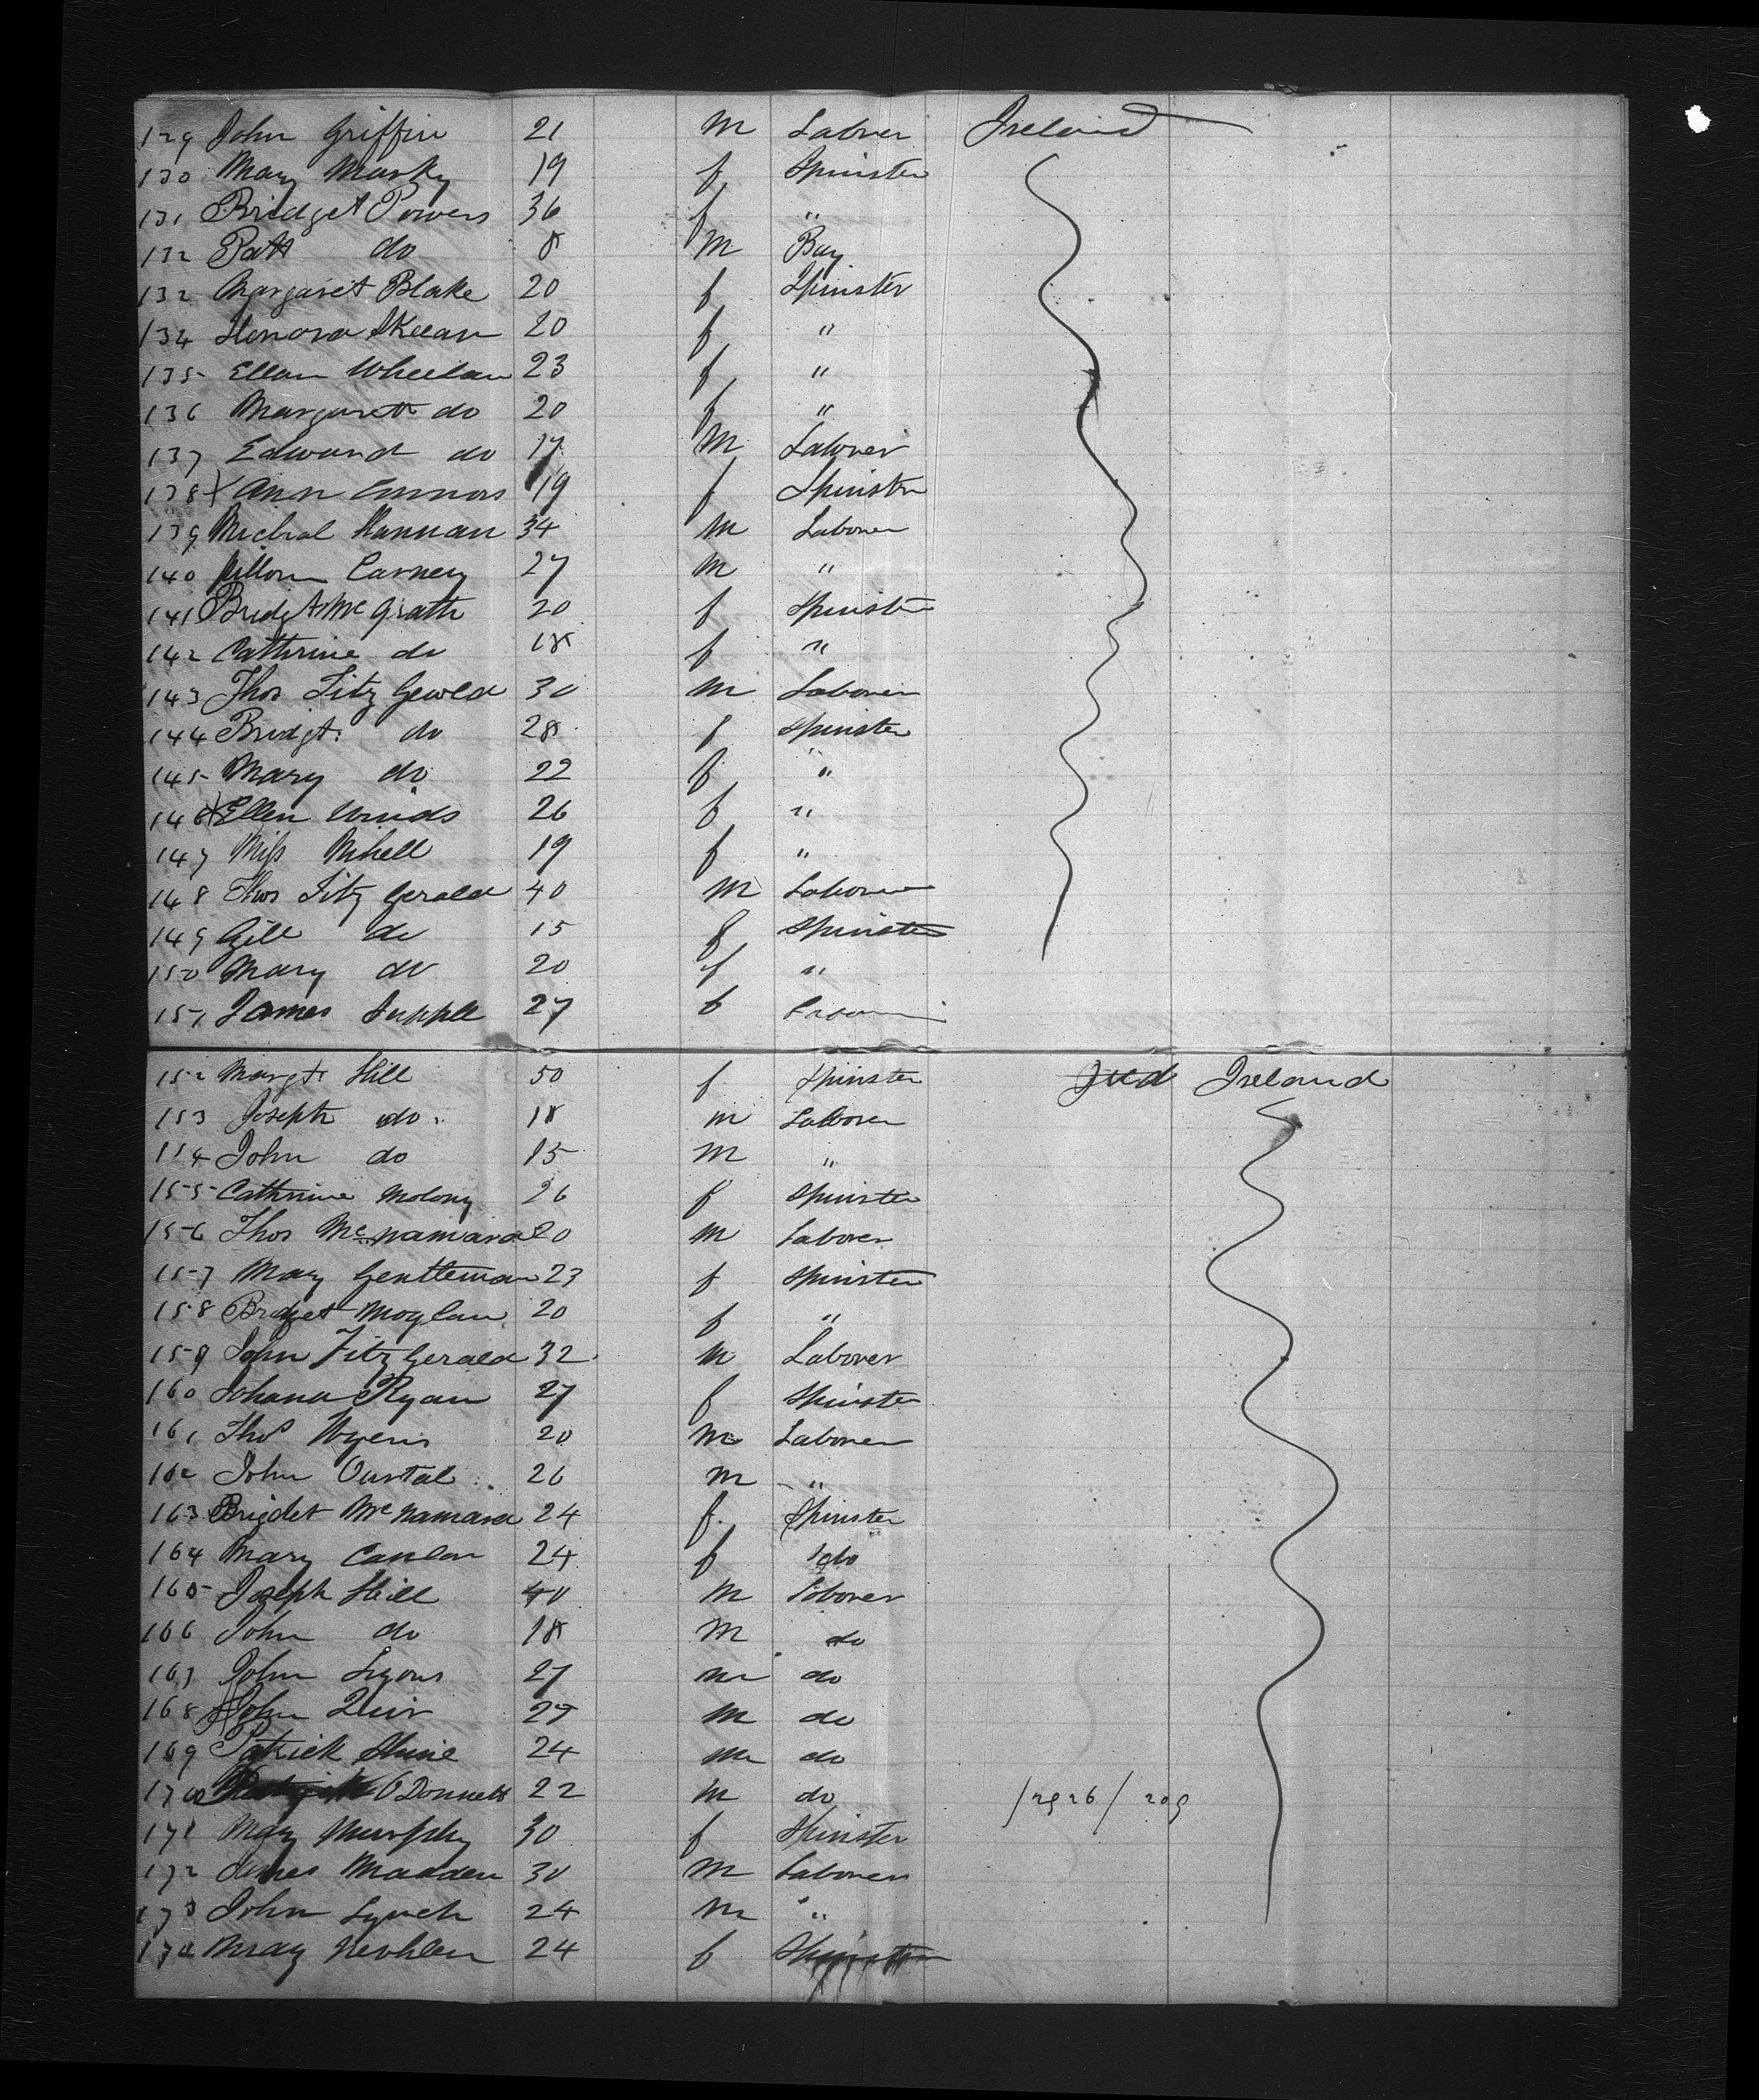 129 John Griffin 21 m Labrer Ireland
130 Mary Marky 19 f Spinster
131 Bridget Powers 36 f "
132 Patt do 8 m Boy
132 Margaret Blake 20 f Spinster
134 Honora Skeean 20 f "
135 Ellan Wheelan 23 f "
136 Margarett do 20 f "
137 Edward do 17 m Laborer
138 Ann Connors 19 f Spinster
139 Micheal Hannan 34 m Laborer
140 Carney 27 m "
141 Bridgt McGrath 20 f Spinster
142 Cathrine do 18 f "
143 Thos Fitz Gerold 30 m Laborer
144 Bridgt. do 28 f Spinster
145 Mary do 22 f "
146 Ellen Winds 26 f "
147 Miss Nihell 19 f "
148 Thos Fitz Gerald 40 m Laborer
149 Gill do 15 f Spinster
150 Mary do 20 f "
151 James Supple 27 f
152 Margt Hill 50 f Spinster Ireland
153 Joseph do 18 m Laborer
154 John do 15 m "
155 Cathrine Molony 26 f Spinster
156 Thos McNamara 20 m Laborer
157 Mary Gentleman 23 f Spinster
158 Bridget Moylan 20 f "
159 John Fitz Gerald 32 m Laborer
160 Johana Ryan 27 f Spinster
161 Thos 20 m Laborer
162 John 26 m "
163 Brigdet McNamara 24 f. Spinster
164 Mary Canlon 24 f do
165 Joseph Hill 40 m Laborer
166 John do 18 m do
167 John Lyons 27 m do
168 John Quin 27 m do
169 Patrick Shine 24 m do
170 O Donnell 22 m do
171 Mary Murphy 30 f Spinster
172 James Madden 30 m Laborer
173 John Lynch 24 m "
174 Mary 24 f Spinster